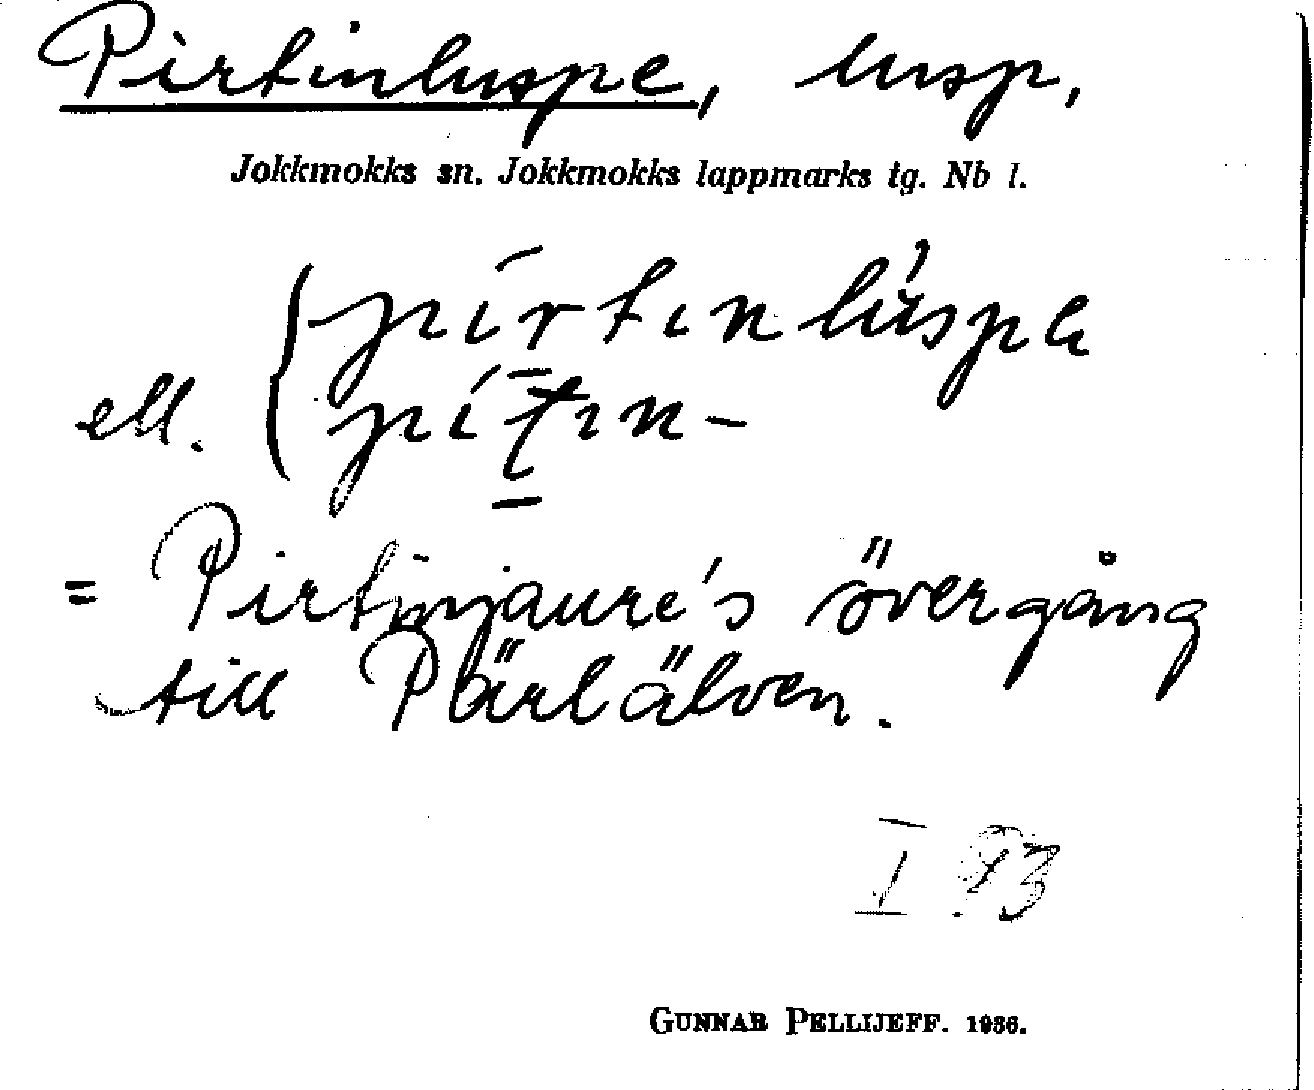 Pirtinluspe, lusp,
Jokkmokks sn. Jokkmokks lappmarks tg. Nb l.
pírtınlùspe
ell. pítın-
= Pirtinjaure's övergång
till Pärlälven.
I
GUNNAR PELLIJEFF. 1936.